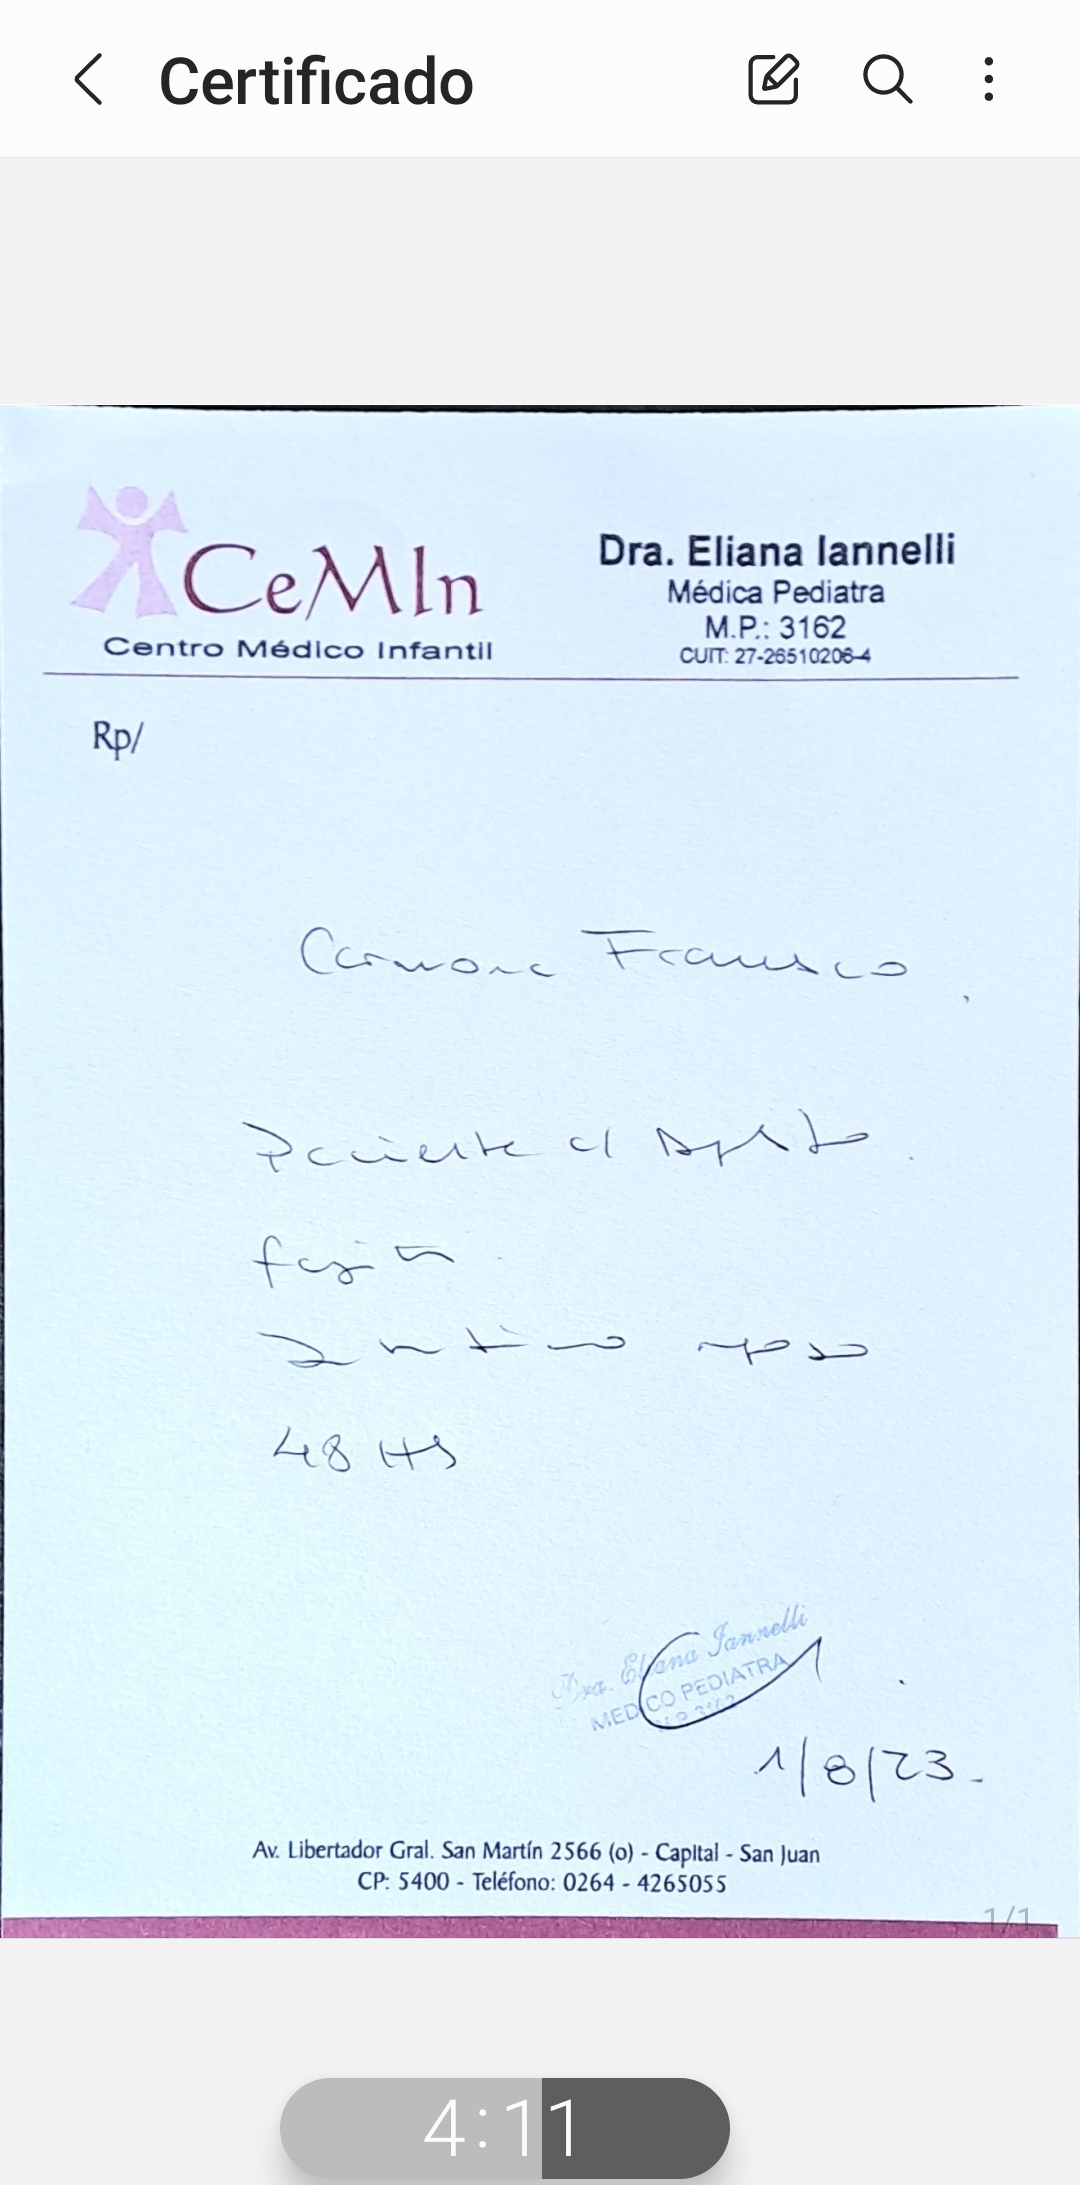 Certificado
CeMIn
Centro Médico Infantil
Dra. Eliana Iannelli
Médica Pediatra
M.P.: 3162
CUIT: 27-26510206-4
Rp/
Carmona Francisco
Paciente c/
48 HS
Dra. Eliana Iannelli
MEDICO PEDIATRA
M.P. 3162
1/8/23.
Av. Libertador Gral. San Martín 2566 (o) - Capital - San Juan
CP: 5400 - Teléfono: 0264 - 4265055
1/1
4:11